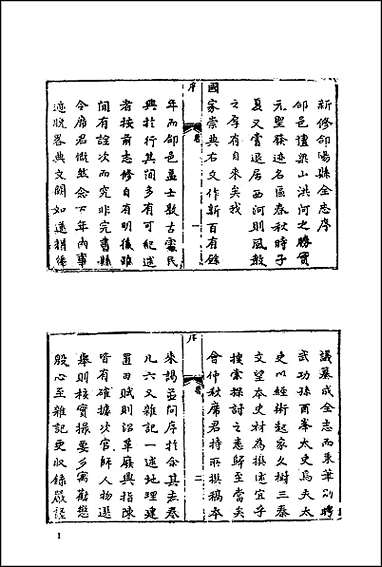 新修郃陽縣全志序
郃邑擅梁山洪河之勝實
元聖發迹名區春秋時子
夏又嘗退居西河則風教
之厚有自來矣我
國家崇典右文作新百有餘
序 卷 一
年而郃邑蓋士敦古處民
興於行其間多有可紀述
者按前志修自有明後雖
間有詮次而究非完書縣
令席君慨然念百年內事
畧典文闕如遂捐俸
議纂成全志而秉筆則聘
武功孫酉峯太史焉夫太
史以經術起家久樹三秦
文望本史材為撰述宜乎
搜索探討之悉歸至當矣
會仲秋席君持所撰稿本
序 卷 二
來謁並問序於余其志卷
凡六又雜記一述地理建
置田賦則沿革廢興指陳
皆有確據次官師人物選
舉則核實撮要多寓勸懲
殷心至雜記更收錄嚴
1